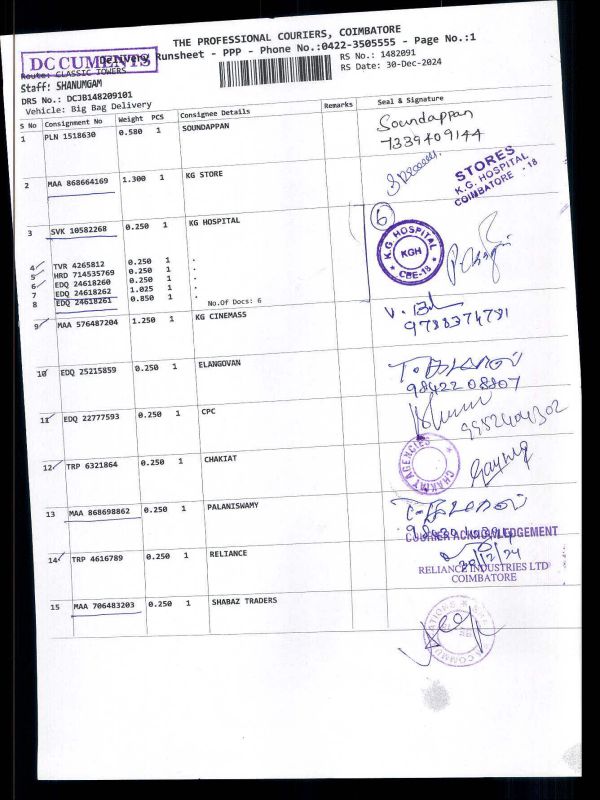 THE PROFESSIONAL COURIERS, COIMBATORE
Delivery Runsheet - PPP - Phone No.:0422-3505555 - Page No.:1
DOCUMENTS
RS No.: 1482091
RS Date: 30-Dec-2024
Route: CLASSIC TOWERS
Staff: SHANUMGAM
DRS No.: DCJB148209101
Vehicle: Big Bag Delivery
S No Consignment No Weight PCS Consignee Details Remarks Seal & Signature
1 PLN 1518630 0.580 1 SOUNDAPPAN Soundappan
7339409144
2 MAA 868664169 1.300 1 KG STORE
STORES
K.G. HOSPITAL
COIMBATORE - 18
3 SVK 10582268 0.250 1 KG HOSPITAL
6
K.G. HOSPITAL
KGH
CBE-18
4 TVR 4265812 0.250 1 "
5 HRD 714535769 0.250 1 "
6 EDQ 24618260 0.250 1 "
7 EDQ 24618262 1.025 1 "
8 EDQ 24618261 0.850 1 "
No.Of Docs: 6
9 MAA 576487204 1.250 1 KG CINEMASS
9788374791
10 EDQ 25215859 0.250 1 ELANGOVAN
9842208807
11 EDQ 22777593 0.250 1 CPC
9952404302
12 TRP 6321864 0.250 1 CHAKIAT
CHAKIAT AGENCIES
13 MAA 868698862 0.250 1 PALANISWAMY
COURIER ACKNOWLEDGEMENT
14 TRP 4616789 0.250 1 RELIANCE
30/12/24
RELIANCE INDUSTRIES LTD
COIMBATORE
15 MAA 706483203 0.250 1 SHABAZ TRADERS